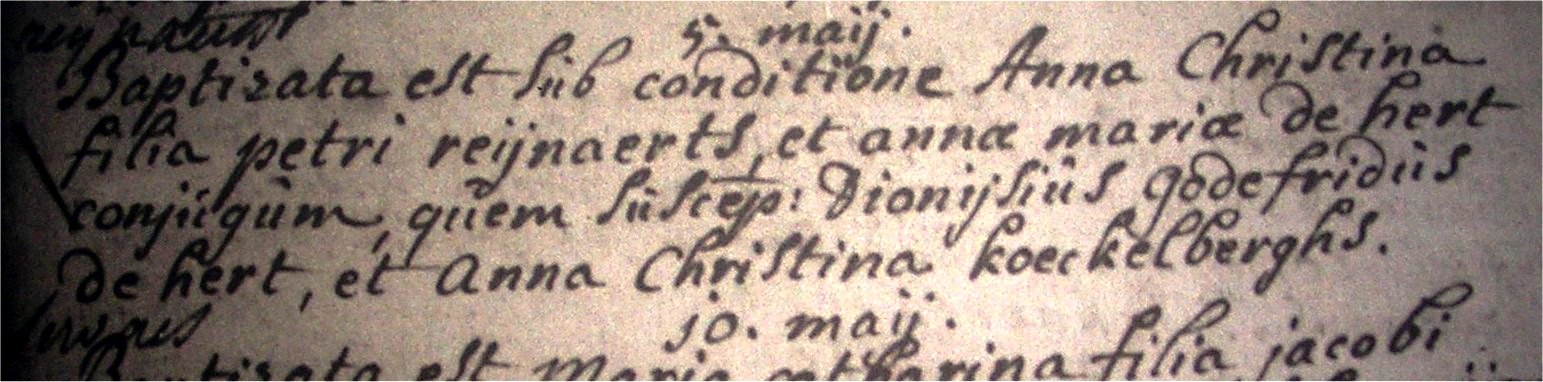 5. maij.
Baptizata est sub conditione Anna Christina
filia petri reijnaerts, et annæ mariæ de hert
conjugum, quem suscep: Dionijsius godefridus
de hert, et Anna Christina koeckelberghs.
10. maij.
Baptizata est Maria catharina filia jacobi